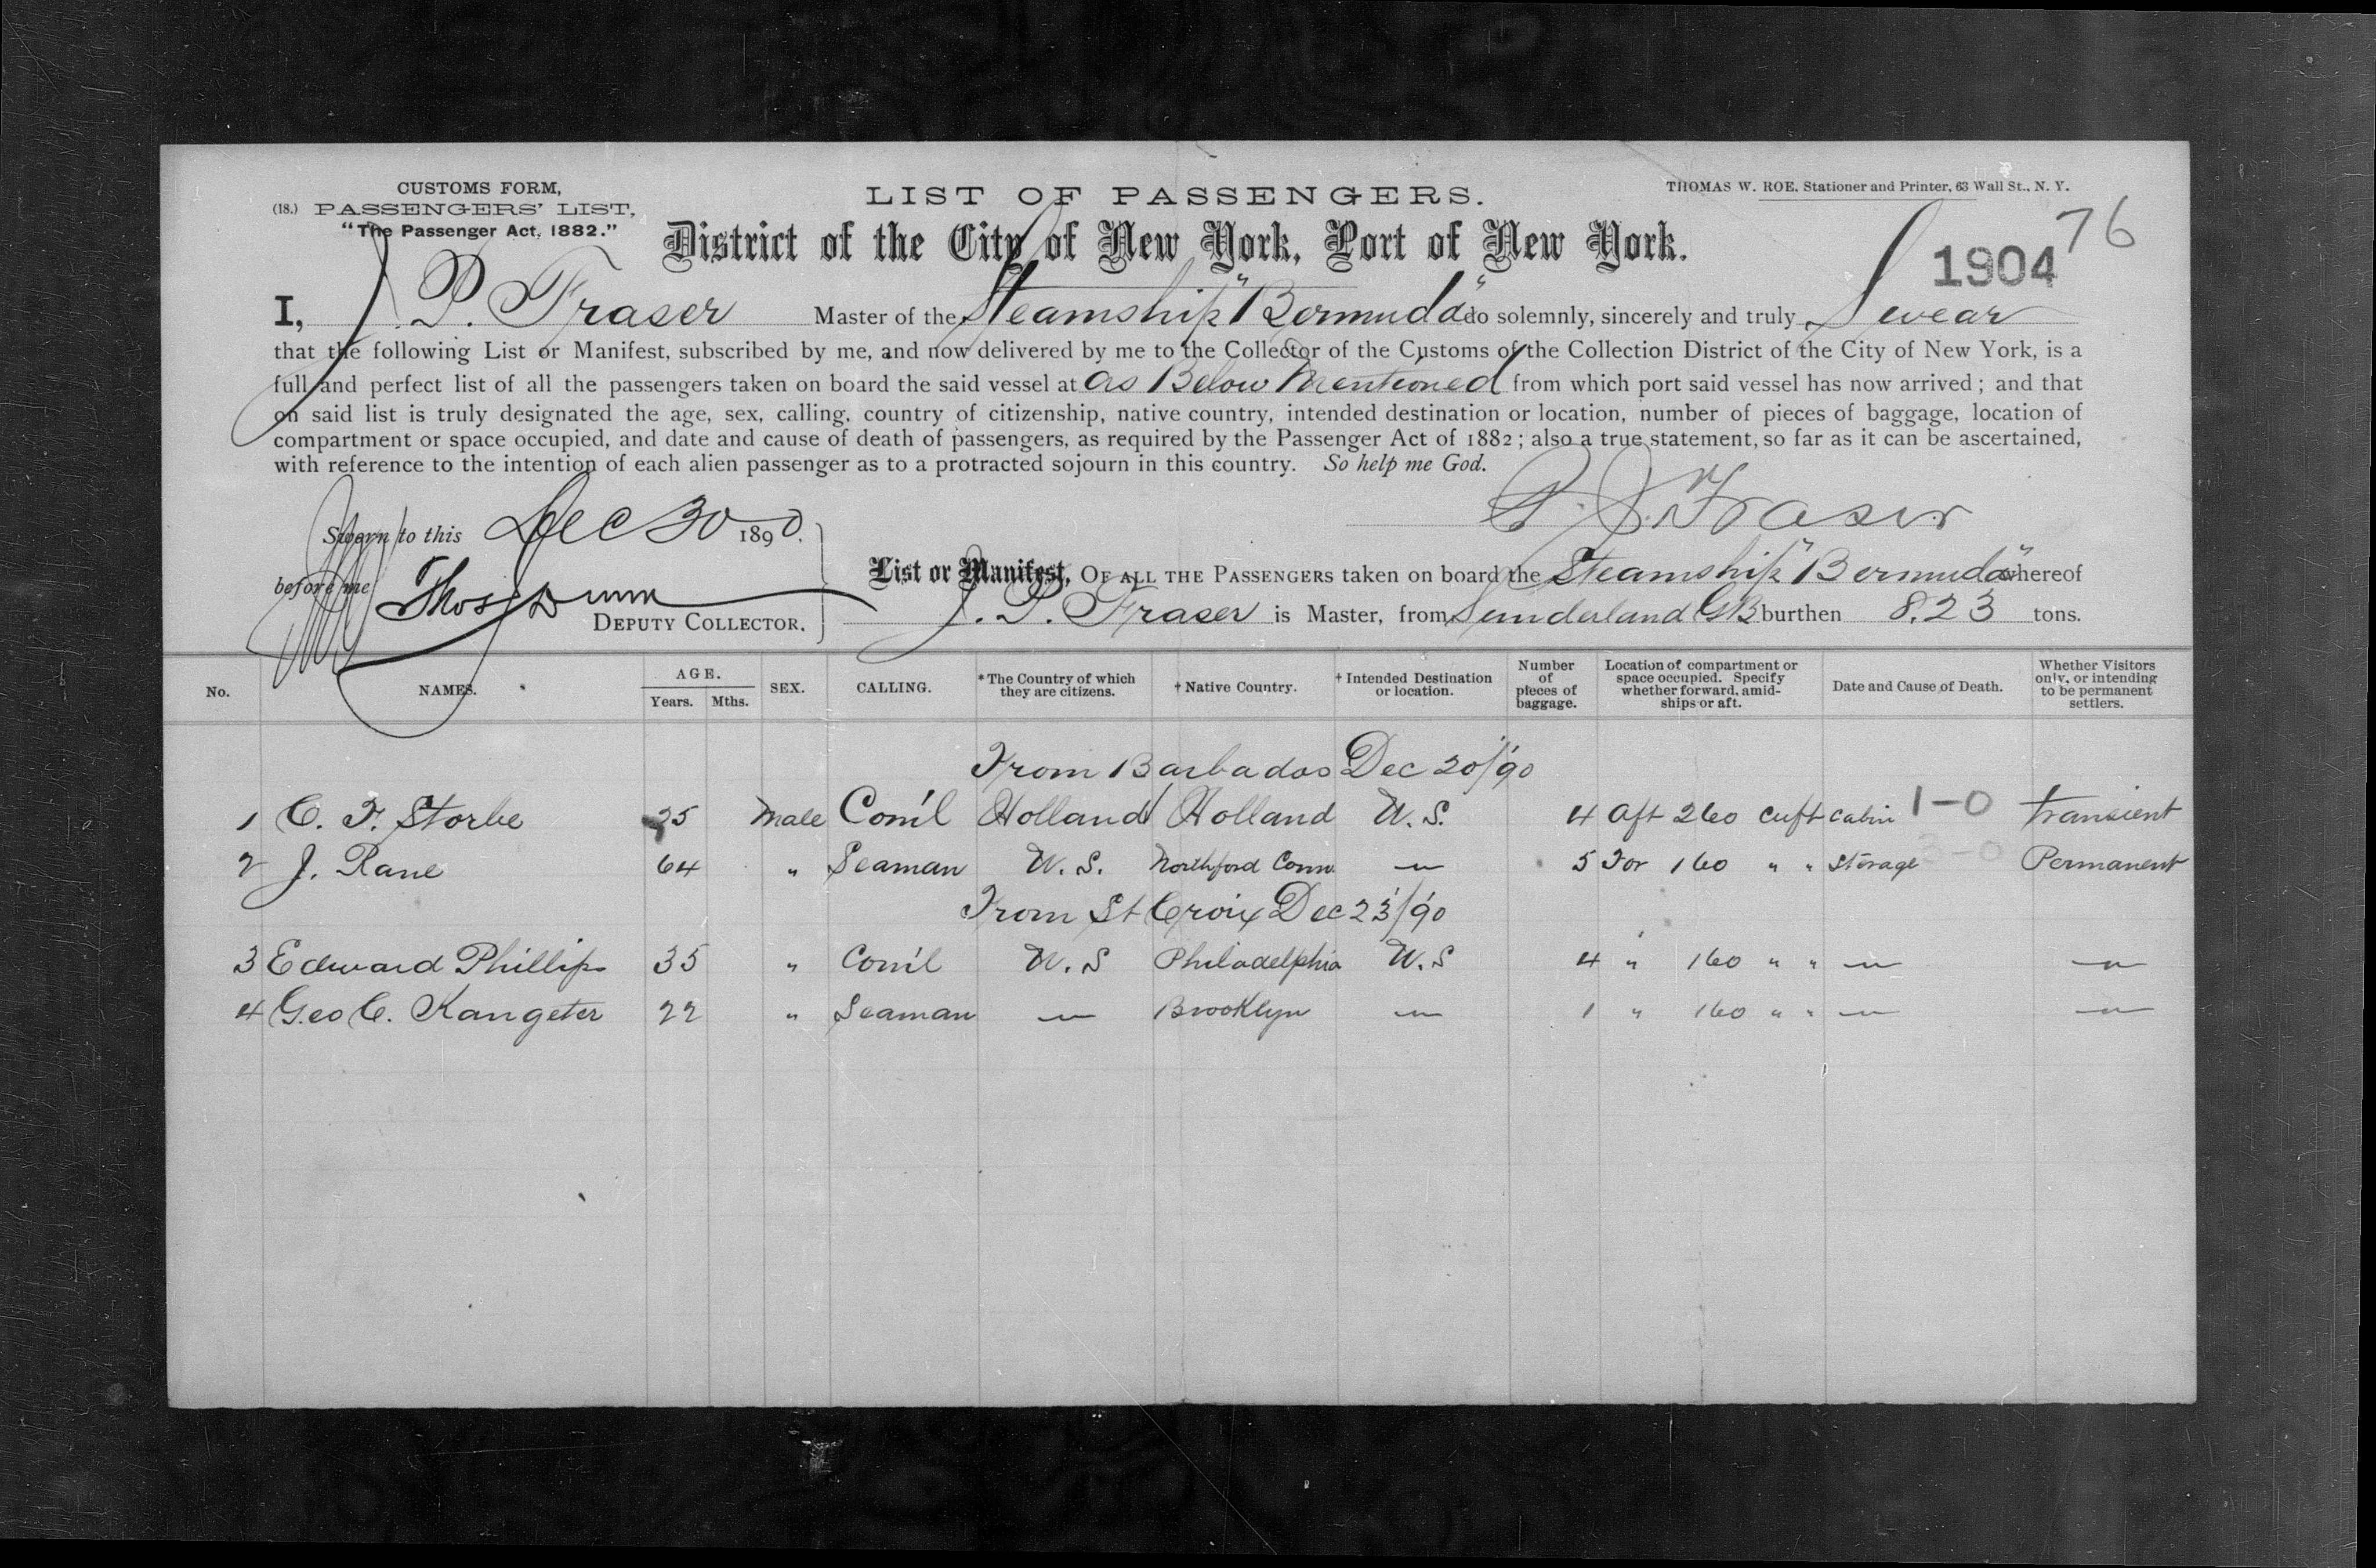 CUSTOMS FORM,
(18.) PASSENGERS' LIST,
"The Passenger Act, 1882."
LIST OF PASSENGERS.
THOMAS W. ROE, Stationer and Printer, 63 Wall St., N. Y.
District of the City of New York, Port of New York.
1904 76
I, J. P. Fraser Master of the Steamship "Bermuda" do solemnly, sincerely and truly Swear
that the following List or Manifest, subscribed by me, and now delivered by me to the Collector of the Customs of the Collection District of the City of New York, is a
full and perfect list of all the passengers taken on board the said vessel at as Below Mentioned from which port said vessel has now arrived; and that
on said list is truly designated the age, sex, calling, country of citizenship, native country, intended destination or location, number of pieces of baggage, location of
compartment or space occupied, and date and cause of death of passengers, as required by the Passenger Act of 1882; also a true statement, so far as it can be ascertained,
with reference to the intention of each alien passenger as to a protracted sojourn in this country. So help me God.
Fraser
Sworn to this Dec 30 1890.
before me Thos Dunn
DEPUTY COLLECTOR.
List or Manifest, OF ALL THE PASSENGERS taken on board the Steamship "Bermuda" whereof
J. P. Fraser is Master, from Sunderland GB burthen 8.23 tons.
No. NAMES. AGE. Years. Mths. SEX. CALLING. *The Country of which they are citizens. †Native Country. †Intended Destination or location. Number of pieces of baggage. Location of compartment or space occupied. Specify whether forward, amidships or aft. Date and Cause of Death. Whether Visitors only, or intending to be permanent settlers.
From Barbados Dec 20/90
1 C. F. Storbe 25 Male Com'l Holland Holland U.S. 4 Aft 260 cuft cabin 1-0 Transient
2 J. Rane 64 " Seaman U.S. Northford Conn. — 5 For 160 " " Storage 3-0 Permanent
From St Croix Dec 23/90
3 Edward Phillips 35 " Com'l U.S Philadelphia U.S 4 " 160 " " — —
4 Geo C. Kangeter 22 " Seaman — Brooklyn — 1 " 160 " " — —